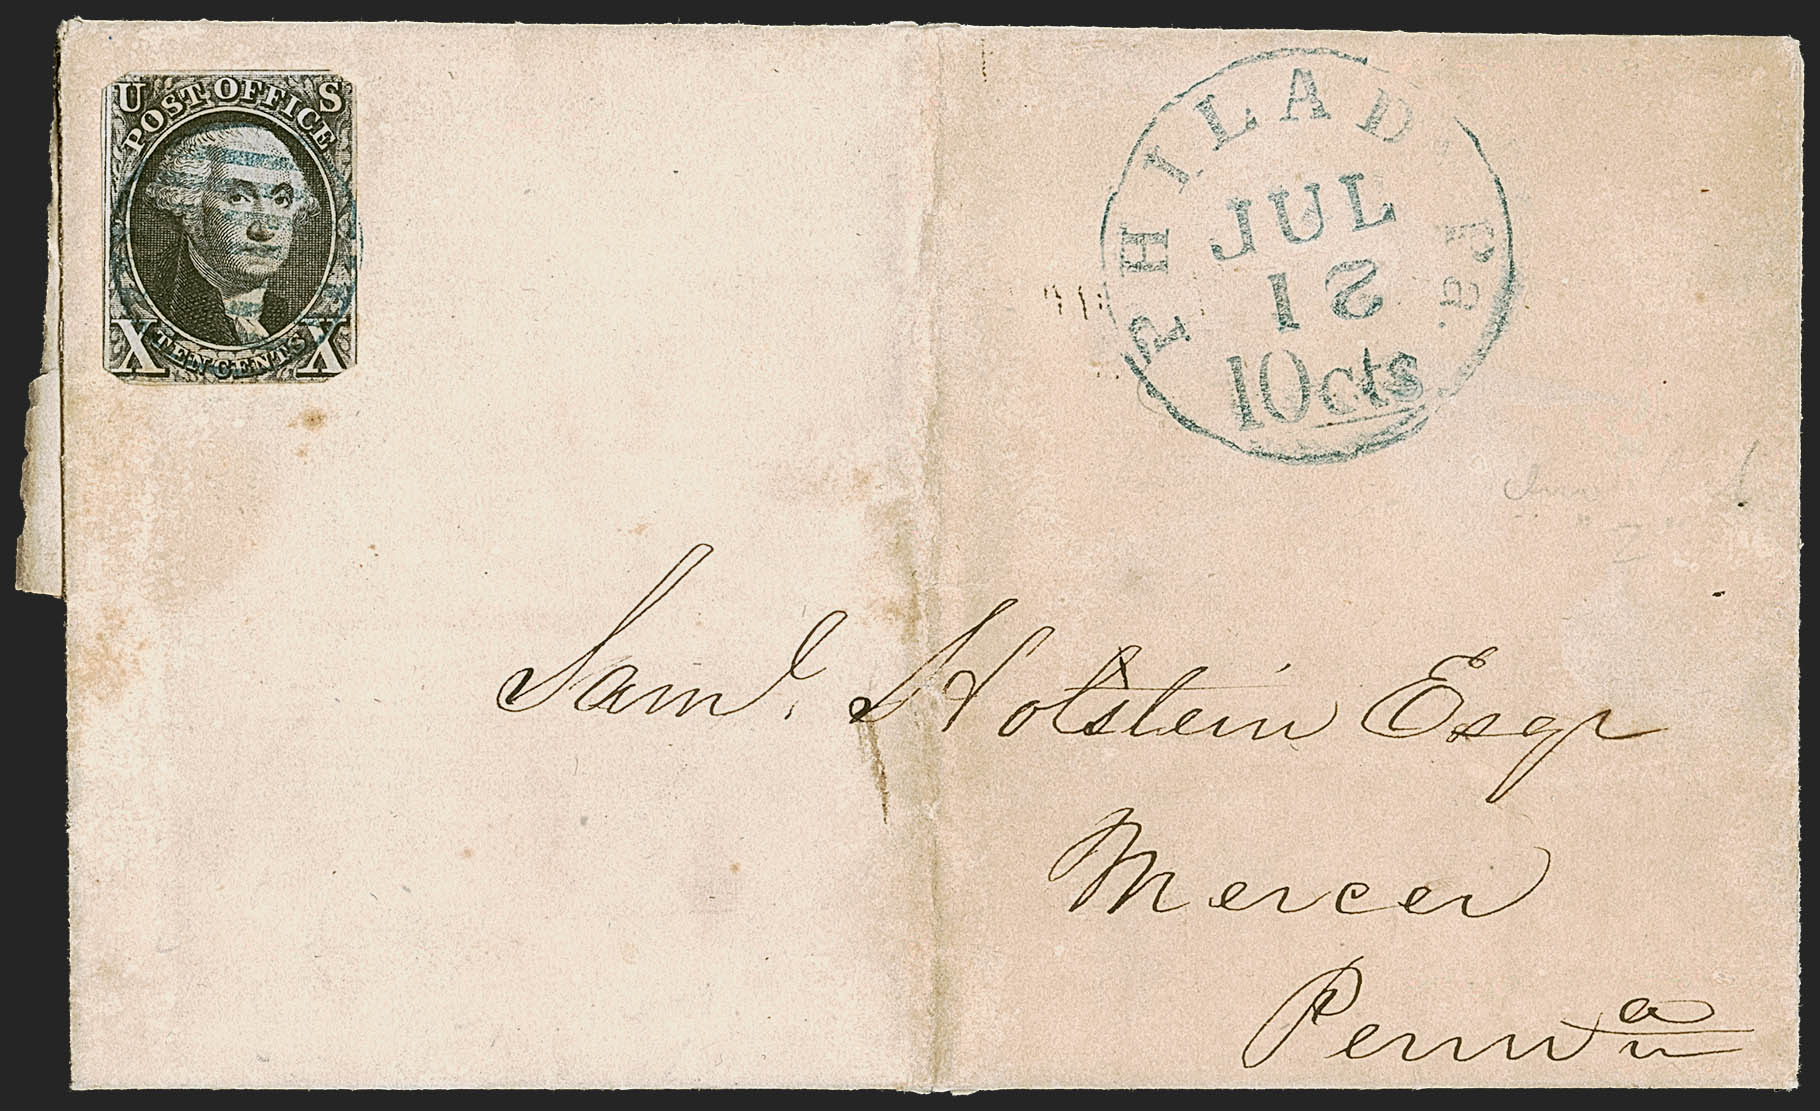 U S
POST OFFICE
X TEN CENTS X
PHILAD. Pa.
JUL
12
10cts
Saml. Holstein Esqr
Mercer
Pennva